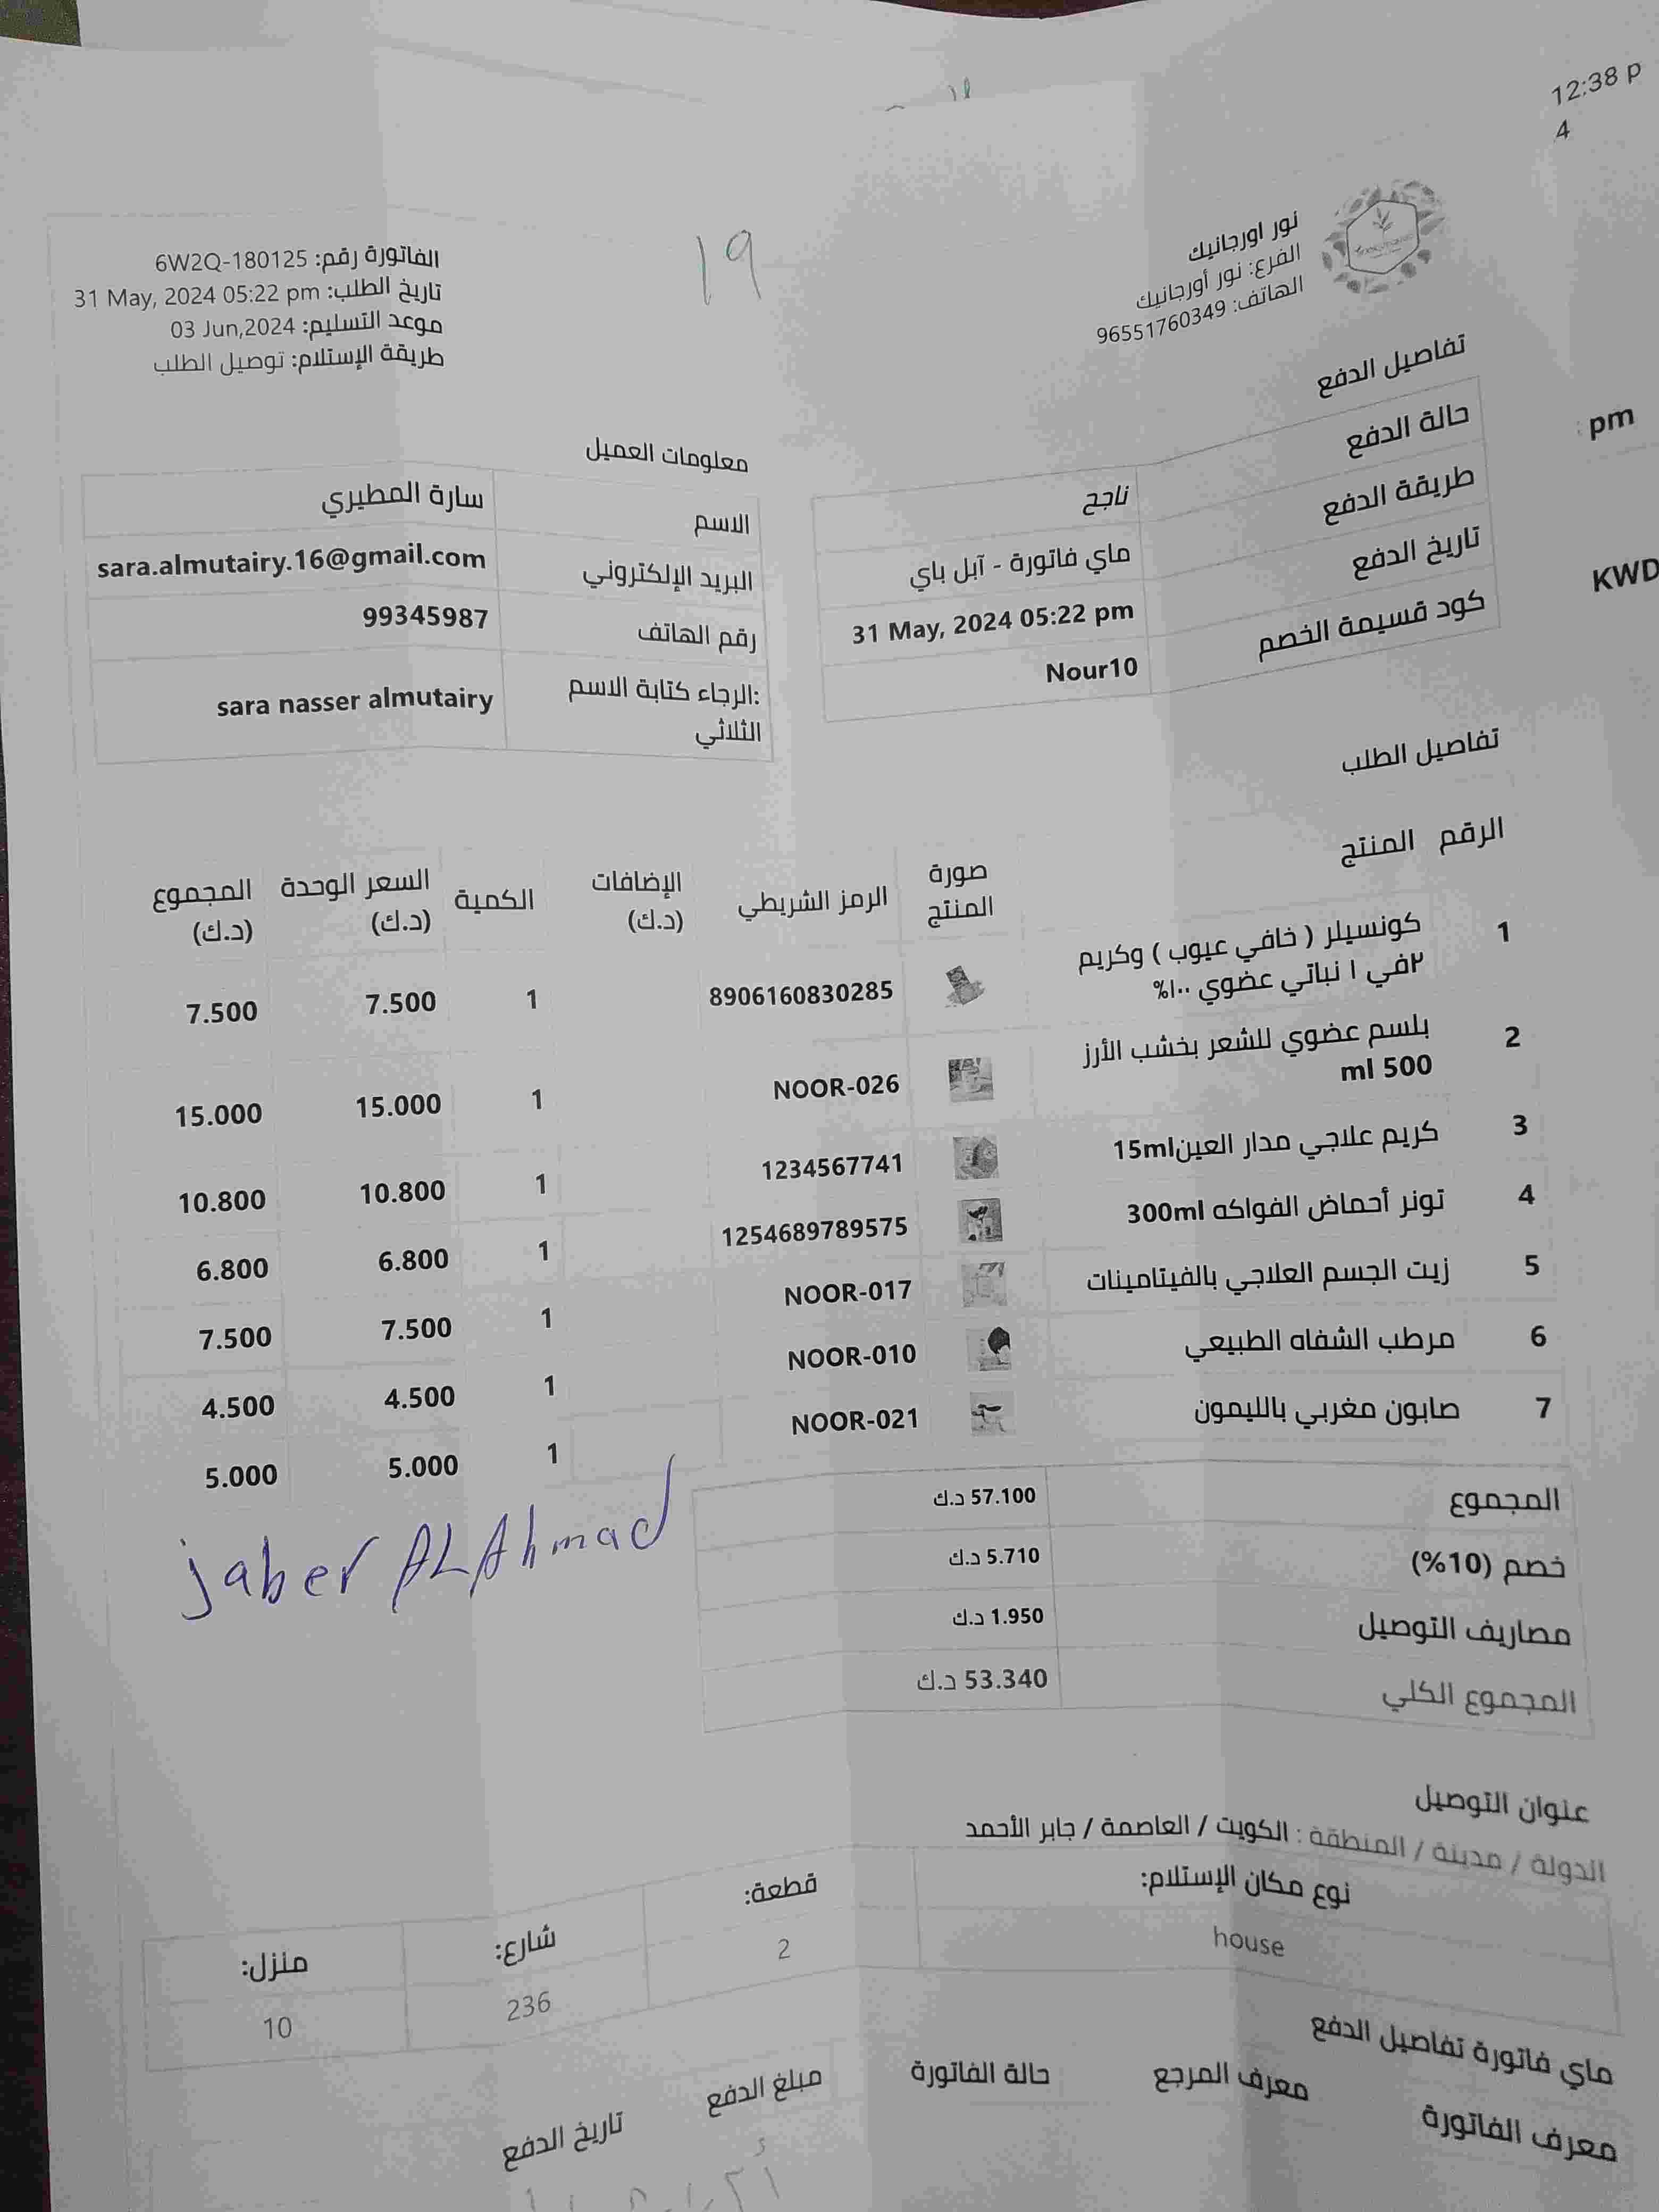 12:38 p
4
نور اورجانيك
الفرع: نور أورجانيك
الهاتف: 96551760349
١٩
الفاتورة رقم: 6W2Q-180125
تاريخ الطلب: 31 May, 2024 05:22 pm
موعد التسليم: 03 Jun,2024
طريقة الإستلام: توصيل الطلب
تفاصيل الدفع
حالة الدفع ناجح
طريقة الدفع ماي فاتورة - آبل باي
تاريخ الدفع 31 May, 2024 05:22 pm
كود قسيمة الخصم Nour10
: pm
KWD
معلومات العميل
الاسم سارة المطيري
البريد الإلكتروني sara.almutairy.16@gmail.com
رقم الهاتف 99345987
:الرجاء كتابة الاسم sara nasser almutairy
الثلاثي
تفاصيل الطلب
الرقم المنتج صورة الرمز الشريطي الإضافات الكمية السعر الوحدة المجموع
المنتج (د.ك) (د.ك) (د.ك)
1 كونسيلر ( خافي عيوب ) وكريم 8906160830285 1 7.500 7.500
٢في ١ نباتي عضوي ١٠٠%
2 بلسم عضوي للشعر بخشب الأرز NOOR-026 1 15.000 15.000
500 ml
3 كريم علاجي مدار العين15ml 1234567741 1 10.800 10.800
4 تونر أحماض الفواكه 300ml 1254689789575 1 6.800 6.800
5 زيت الجسم العلاجي بالفيتامينات NOOR-017 1 7.500 7.500
6 مرطب الشفاه الطبيعي NOOR-010 1 4.500 4.500
7 صابون مغربي بالليمون NOOR-021 1 5.000 5.000
المجموع 57.100 د.ك
خصم (10%) 5.710 د.ك
مصاريف التوصيل 1.950 د.ك
المجموع الكلي 53.340 د.ك
jaber ALAhmad
عنوان التوصيل
الدولة / مدينة / المنطقة : الكويت / العاصمة / جابر الأحمد
نوع مكان الإستلام: قطعة: شارع: منزل:
house 2 236 10
ماي فاتورة تفاصيل الدفع
معرف الفاتورة معرف المرجع حالة الفاتورة مبلغ الدفع تاريخ الدفع